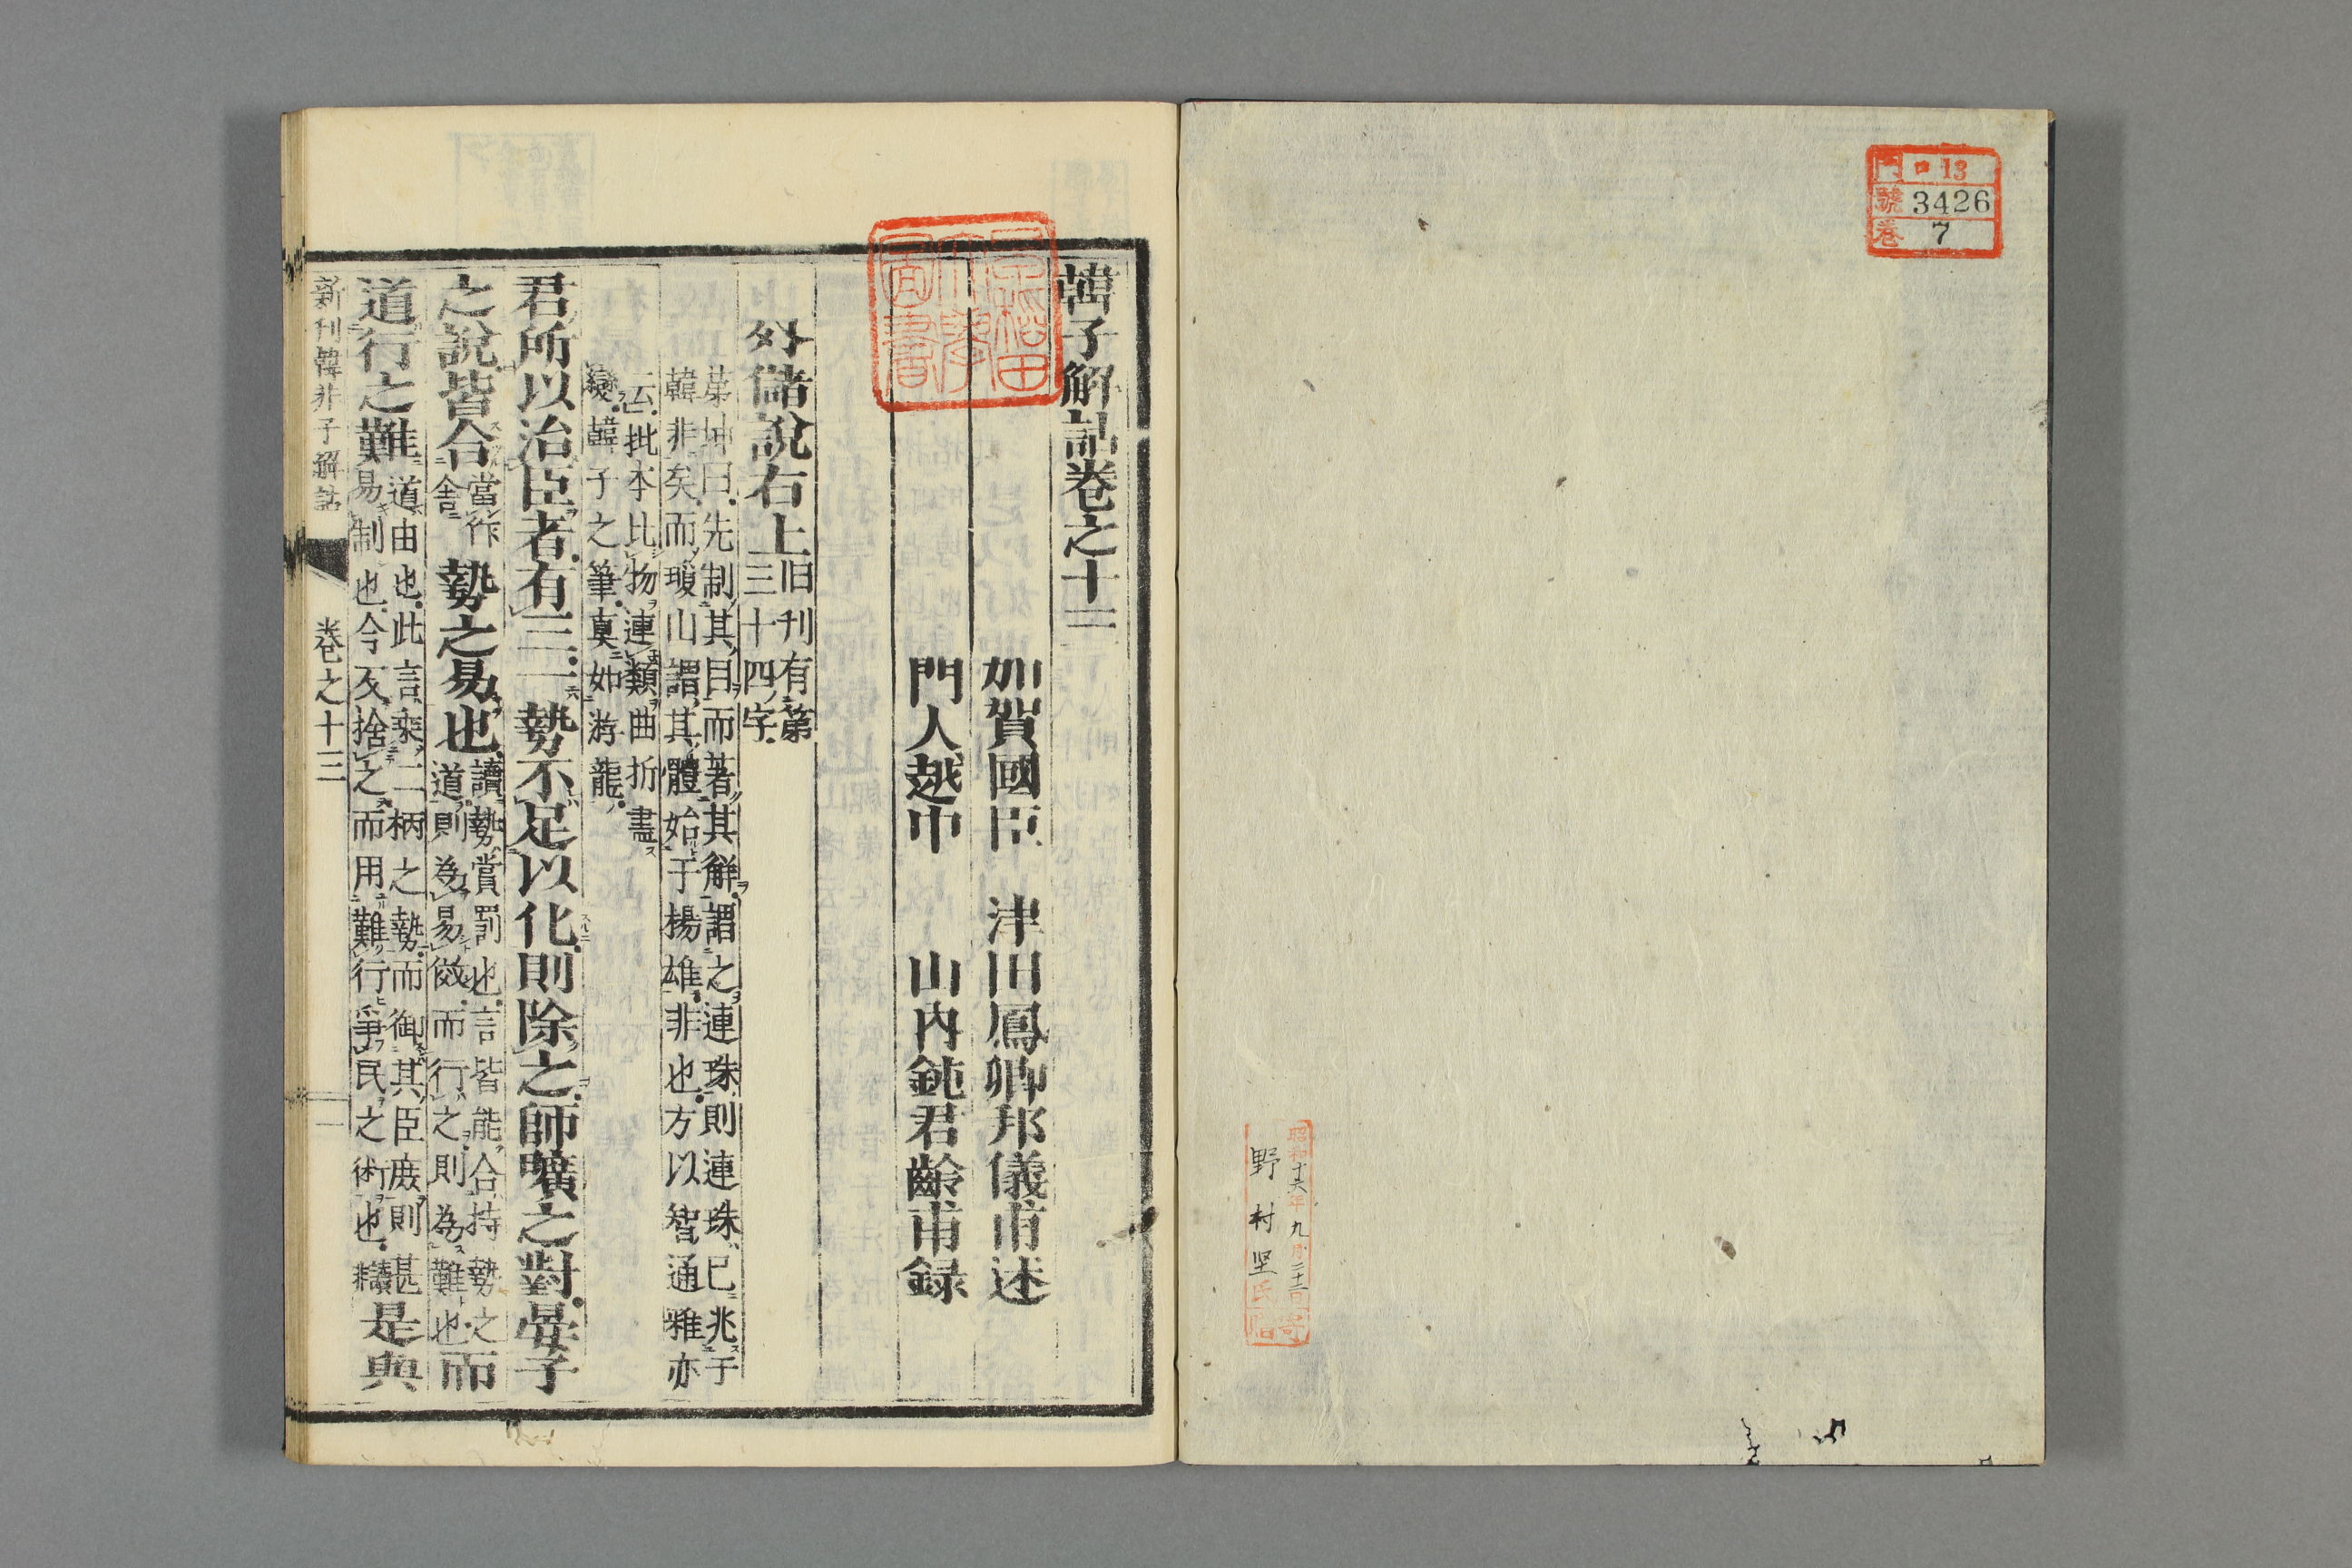 門 ロ13
號 3426
巻 7
昭和十六年九月二十二日
野村堅氏寄贈
早稲田
大學
圖書
韓子解詁卷之十三
加賀國臣 津田鳳卿邦儀甫述
門人越中 山内鈍君齡甫録
外儲說右上
旧刊有第
三十四ノ字
茅坤曰先制其目而著其解謂之連珠則連珠已兆于
韓非矣而瓊山謂其體始于楊雄非也方以智通雅亦
云批本比物連類曲折盡
變韓子之筆眞如游龍
君所以治臣者有三一勢不足以化則除之師曠之對晏子
之說皆合
當作
舍
勢之易也
讀勢賞罰也言皆能合持勢之
道則為易傚而行之則為難也
而
道行之難
道由也此言乘二柄之勢而御其臣庶則甚
易制也今反捨之而用難行爭民之術也
是與
新刊韓非子解詁 卷之十三 一